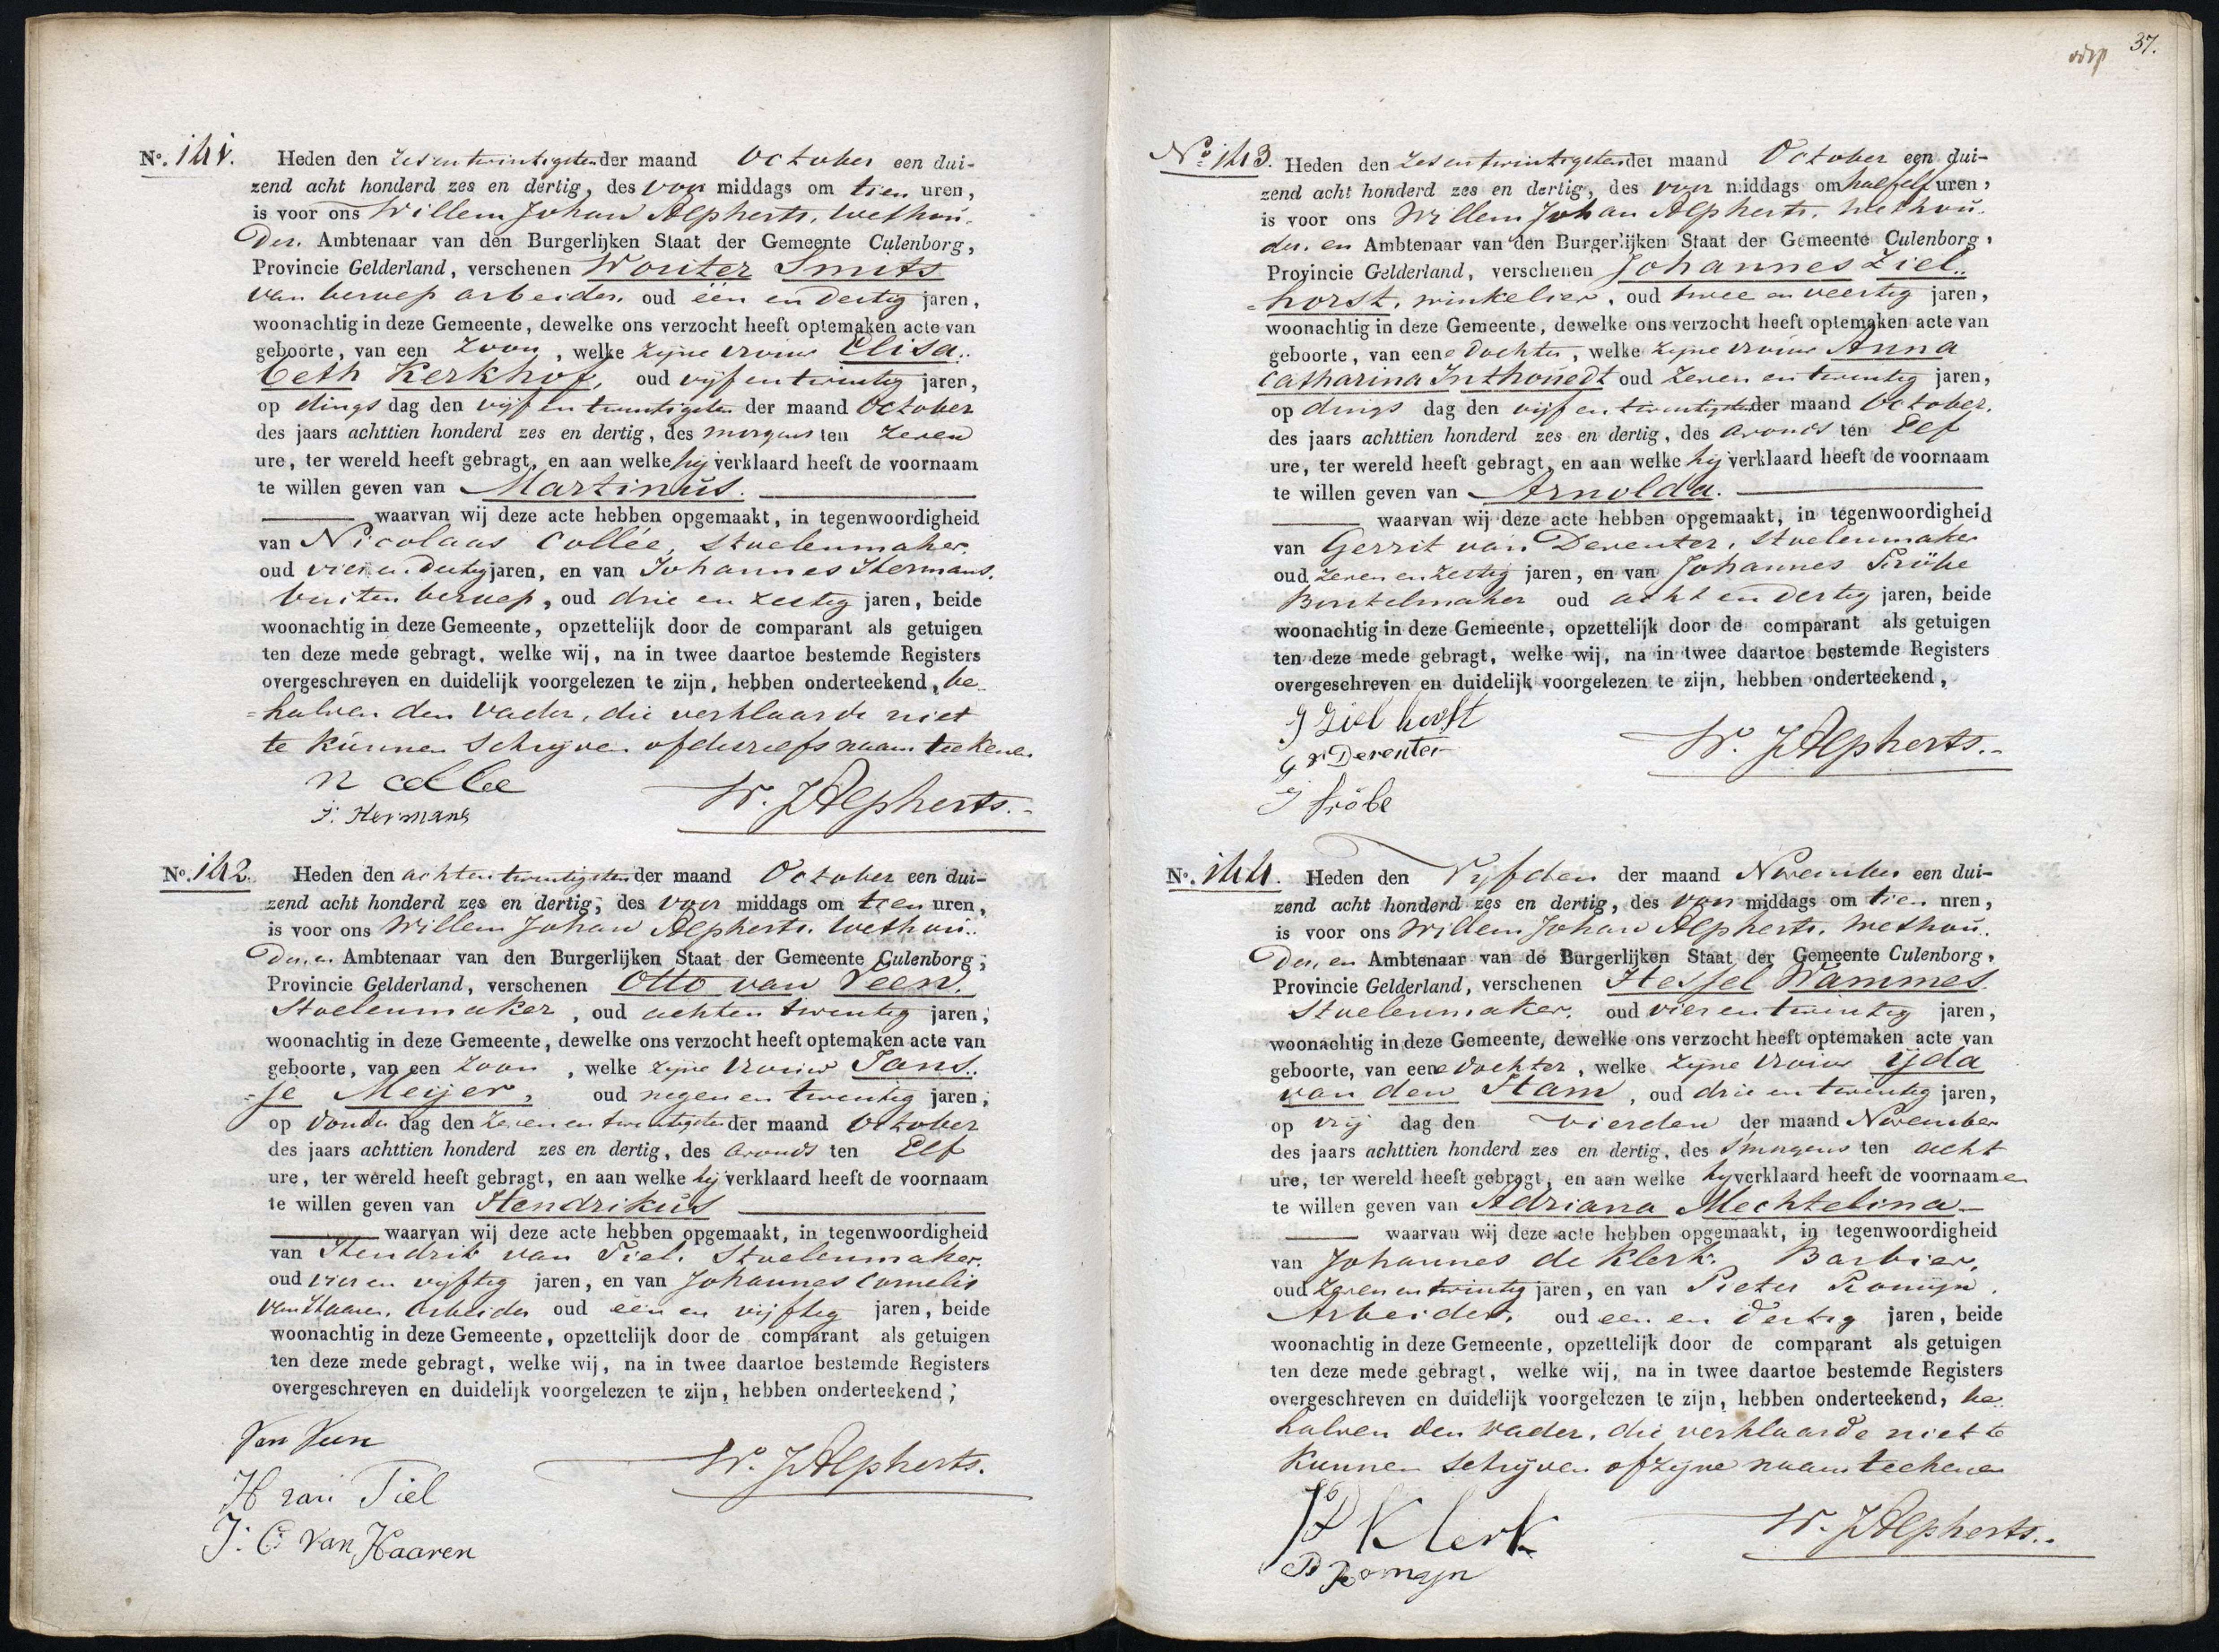 No. 141. Heden den zes en twintigsten der maand October een dui-
zend acht honderd zes en dertig, des voor middags om tien uren,
is voor ons Willem Johan Alpherts, Wethou-
der, Ambtenaar van den Burgerlijken Staat der Gemeente Culenborg,
Provincie Gelderland, verschenen Wouter Smits
van beroep arbeider, oud één en dertig jaren,
woonachtig in deze Gemeente, dewelke ons verzocht heeft optemaken acte van
geboorte, van een zoon, welke zijne vrouw Elisa..
beth Kerkhof, oud vijf en twintig jaren,
op dings dag den vijf en twintigsten der maand October
des jaars achttien honderd zes en dertig, des morgens ten zeven
ure, ter wereld heeft gebragt, en aan welke hij verklaard heeft de voornaam
te willen geven van Martinus.
waarvan wij deze acte hebben opgemaakt, in tegenwoordigheid
van Nicolaas Collée, stoelenmaker,
oud vier en dertig jaren, en van Johannes Hermans,
buiten beroep, oud drie en zestig jaren, beide
woonachtig in deze Gemeente, opzettelijk door de comparant als getuigen
ten deze mede gebragt, welke wij, na in twee daartoe bestemde Registers
overgeschreven en duidelijk voorgelezen te zijn, hebben onderteekend, be..
=halven den vader, die verklaarde niet
te kunnen schrijven of deszelfs naam teekenen
N collee
J: Hermans
W. J Alpherts.-
No. 142. Heden den acht en twintigsten der maand October een dui-
zend acht honderd zes en dertig, des voor middags om tien uren,
is voor ons Willem Johan Alpherts, Wethou..
der, en Ambtenaar van den Burgerlijken Staat der Gemeente Culenborg,
Provincie Gelderland, verschenen Otto van Veen,
Stoelenmaker, oud acht en twintig jaren,
woonachtig in deze Gemeente, dewelke ons verzocht heeft optemaken acte van
geboorte, van een zoon, welke zijne vrouw Jans..
=je Meijer, oud negen en twintig jaren,
op donder dag den zeven en twintigsten der maand October
des jaars achttien honderd zes en dertig, des avonds ten Elf
ure, ter wereld heeft gebragt, en aan welke hij verklaard heeft de voornaam
te willen geven van Hendrikus
waarvan wij deze acte hebben opgemaakt, in tegenwoordigheid
van Hendrik van Tiel, Stoelenmaker,
oud vier en vijftig jaren, en van Johannes Cornelis
van Haaren, arbeider oud een en vijftig jaren, beide
woonachtig in deze Gemeente, opzettelijk door de comparant als getuigen
ten deze mede gebragt, welke wij, na in twee daartoe bestemde Registers
overgeschreven en duidelijk voorgelezen te zijn, hebben onderteekend,
Van Veen
H van Tiel
J: C: van Haaren
W. J Alpherts.
37.
No. 143. Heden den zes en twintigsten der maand October een dui-
zend acht honderd zes en dertig, des voor middags om half elf uren,
is voor ons Willem Johan Alpherts, Wethou-
der, en Ambtenaar van den Burgerlijken Staat der Gemeente Culenborg,
Provincie Gelderland, verschenen Johannes Ziel..
=horst, winkelier, oud twee en veertig jaren,
woonachtig in deze Gemeente, dewelke ons verzocht heeft optemaken acte van
geboorte, van eene dochter, welke zijne vrouw Anna
Catharina Inthouedt oud zeven en twintig jaren,
op dings dag den vijf en twintigsten der maand October,
des jaars achttien honderd zes en dertig, des avonds ten Elf
ure, ter wereld heeft gebragt, en aan welke hij verklaard heeft de voornaam
te willen geven van Arnolda.
waarvan wij deze acte hebben opgemaakt, in tegenwoordigheid
van Gerrit van Deventer, stoelenmaker
oud zeven en zestig jaren, en van Johannes Fröbe
Borstelmaker oud acht en dertig jaren, beide
woonachtig in deze Gemeente, opzettelijk door de comparant als getuigen
ten deze mede gebragt, welke wij, na in twee daartoe bestemde Registers
overgeschreven en duidelijk voorgelezen te zijn, hebben onderteekend,
J Zielhorst
G v Deventer
J fröbe
W. J Alpherts.-
No. 144. Heden den Vijfden der maand November een dui-
zend acht honderd zes en dertig, des voor middags om tien uren,
is voor ons Willem Johan Alpherts, Wethou-
der, en Ambtenaar van de Burgerlijken Staat der Gemeente Culenborg,
Provincie Gelderland, verschenen Hessel Wammes
Stoelenmaker, oud vier en twintig jaren,
woonachtig in deze Gemeente, dewelke ons verzocht heeft optemaken acte van
geboorte, van eene dochter, welke zijne vrouw Yda
van den Stam, oud drie en twintig jaren,
op vrij dag den vierden der maand November
des jaars achttien honderd zes en dertig, des smorgens ten acht
ure, ter wereld heeft gebragt, en aan welke hij verklaard heeft de voornaame
te willen geven van Adriana Mechtelina
waarvan wij deze acte hebben opgemaakt, in tegenwoordigheid
van Johannes de Klerk, Barbier,
oud zeven en twintig jaren, en van Pieter Romijn,
Arbeider, oud een en dertig jaren, beide
woonachtig in deze Gemeente, opzettelijk door de comparant als getuigen
ten deze mede gebragt, welke wij, na in twee daartoe bestemde Registers
overgeschreven en duidelijk voorgelezen te zijn, hebben onderteekend, be..
halven den vader, die verklaarde niet te
kunnen schrijven of zijne naam teekenen
J D Klerk
P Romyn
W. J Alpherts..